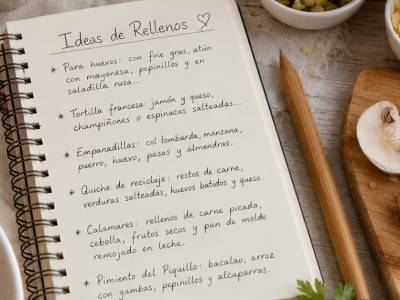 Ideas de Rellenos ♡
* Para huevos: con foie gras, atún
con mayonesa, pepinillos y en
saladilla rusa...
* Tortilla francesa: jamón y queso,
champiñones o espinacas salteadas...
* Empanadillas: col lombarda, manzana,
puerro, huevo, pasas y almendras...
* Quiche de reciclaje: restos de carne,
verduras salteadas, huevos batidos y queso.
* Calamares: rellenos de carne picada,
cebolla, frutos secos y pan de molde
remojado en leche.
* Pimiento del Piquillo: bacalao, arroz
con gambas, pepinillos y alcaparras.